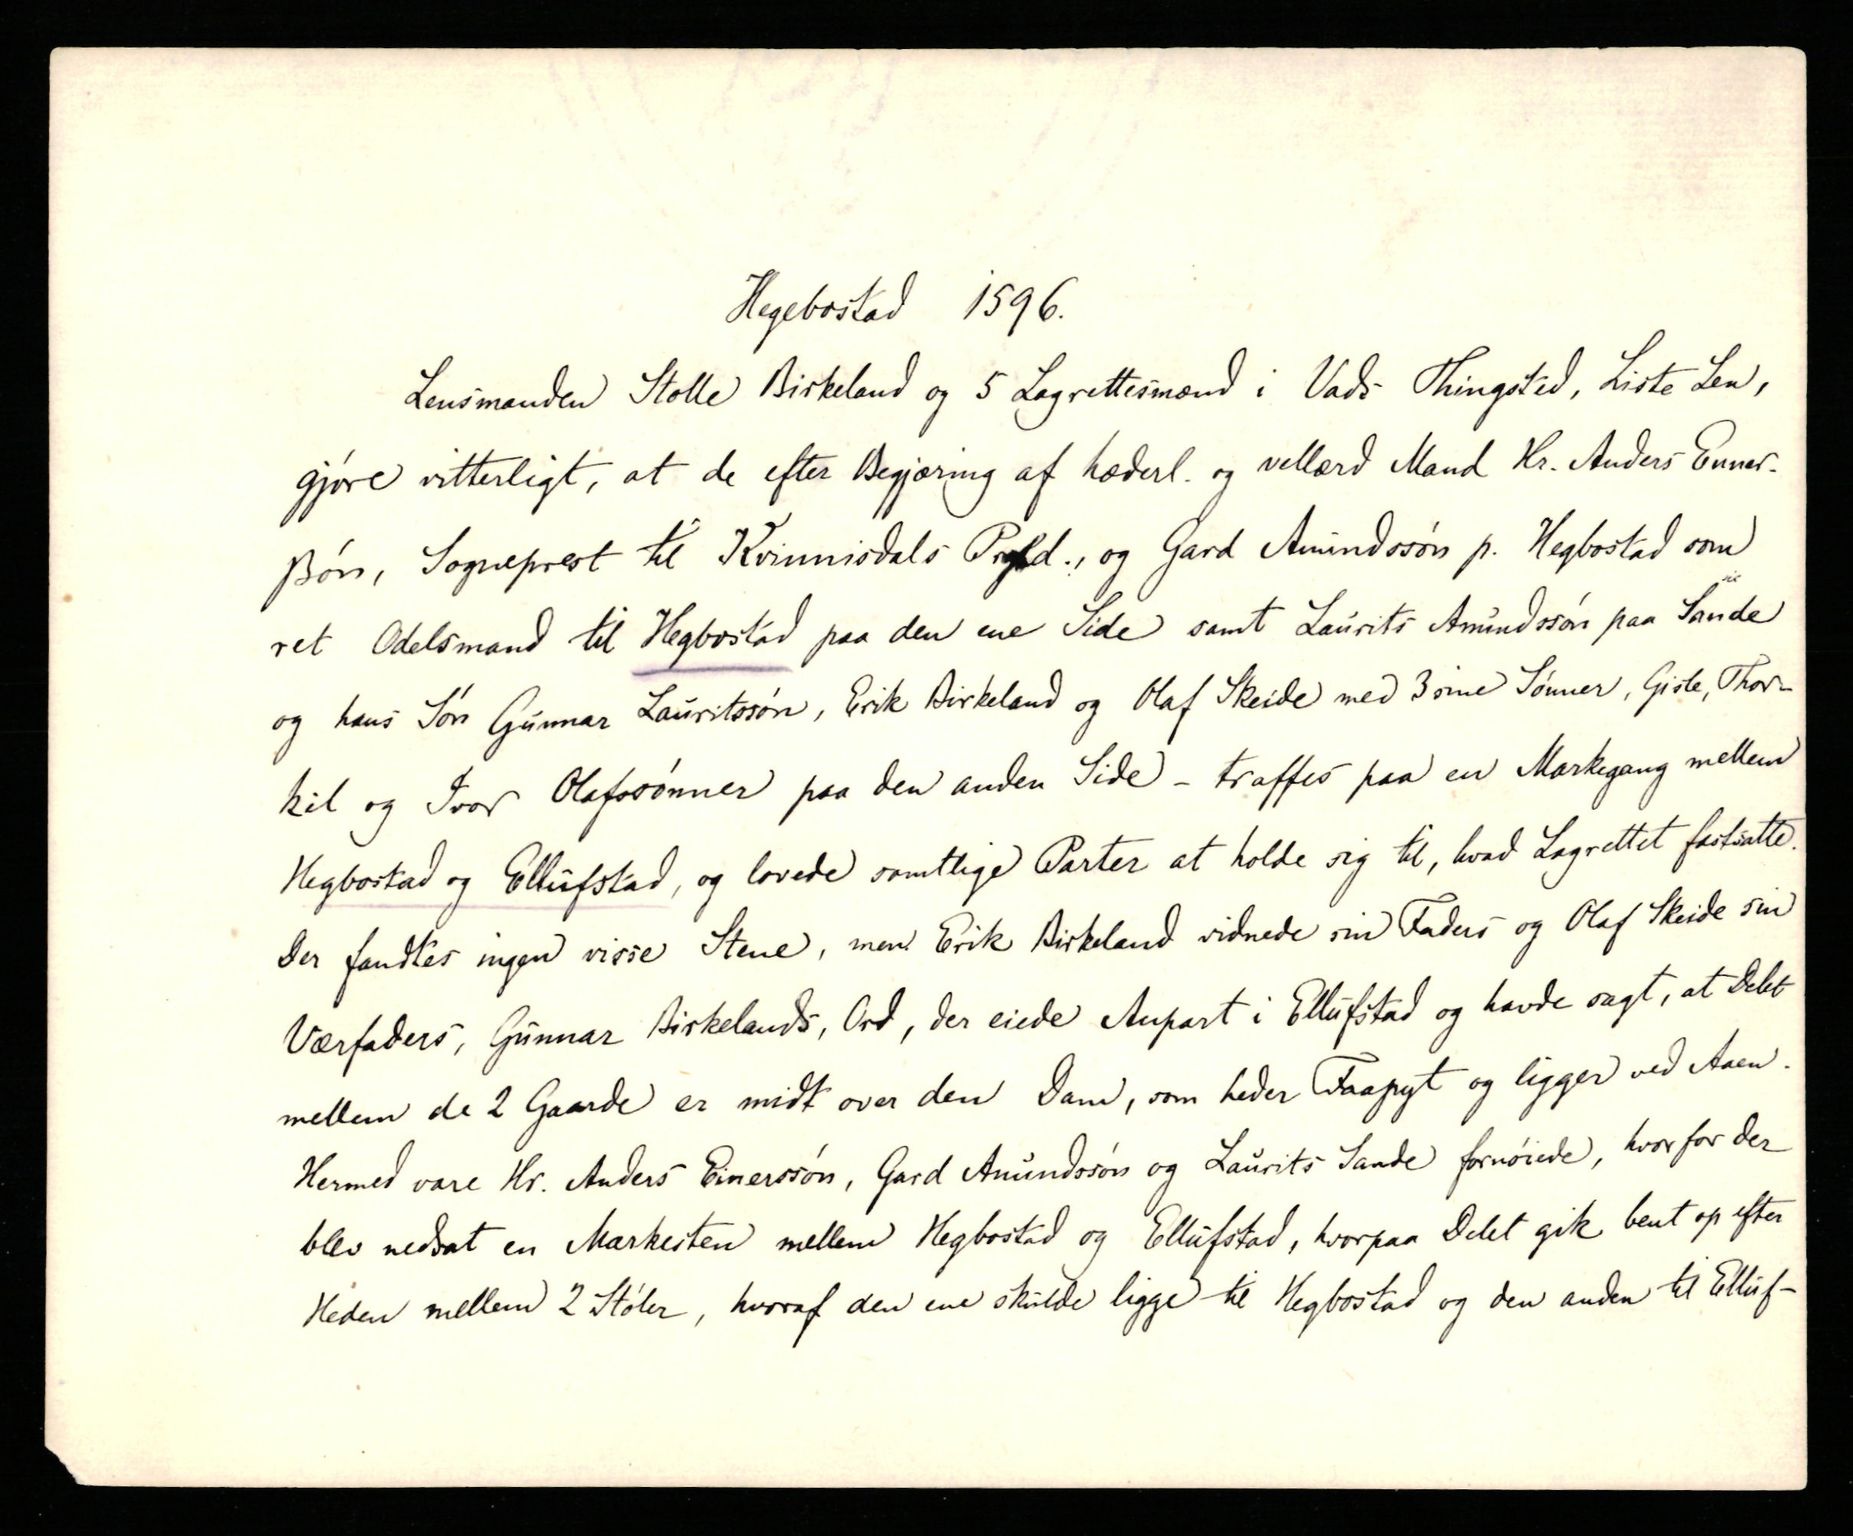 Hegebostad 1596.
Lensmanden Stolle Birkeland og 5 Lagrettesmænd i Vads Thingsted, Liste Len,
gjóre vitterligt, at de efter Begjæring af hæderl. og vellærd Mand Hr. Anders Enner-
ßón, Sogneprest til Kvinnisdals Prgld., og Gard Amundssón p. Hegbostad som
ret Odelsmand til Hegbostad paa den ene Side samt Laurits Amundssón paa Sande
og hans Són Gunnar Lauritssón, Erik Birkeland og Olaf Skeide med 3 sine Sónner, Gisle, Thor-
kil og Ivor Olafssónner paa den anden Side - traffes paa en Markegang mellem
Hegbostad og Ellufstad, og lovede samtlige Parter at holde sig til, hvad Lagrettet fastsatte.
Der fandtes ingen visse Stene, men Erik Birkeland vidnede sin Faders og Olaf Skeide sin
Værfaders, Gunnar Birkelands, Ord, der eiede Anpart i Ellufstad og havde sagt, at Delet
mellem de 2 Gaarde er midt over den Dam, som heder Faapyt og ligger ved Aaen.
Hermed vare Hr. Anders Einerssón, Gard Amundssón og Laurits Sande fornóiede, hvorfor der
blev nedsat en Markesten mellem Hegbostad og Ellufstad, hvorpaa Delet gik bent op efter
Heden mellem 2 Stóler, hvoraf den ene skulde ligge til Hegbostad og den anden til Elluf-